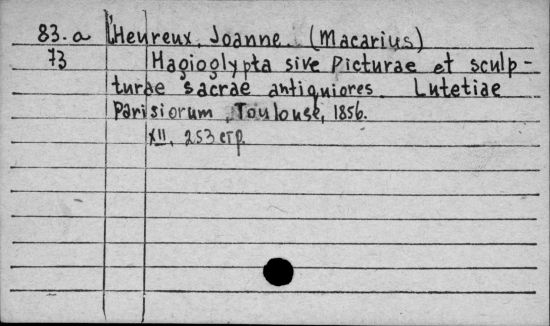 83.a L'Heureux, Joanne. (Macarius)
73 Hagioglypta sive Picturae et sculp-
turae sacrae antiquiores Lutetiae
Parisiorum, Toulouse, 1856.
XII, 253 стр.